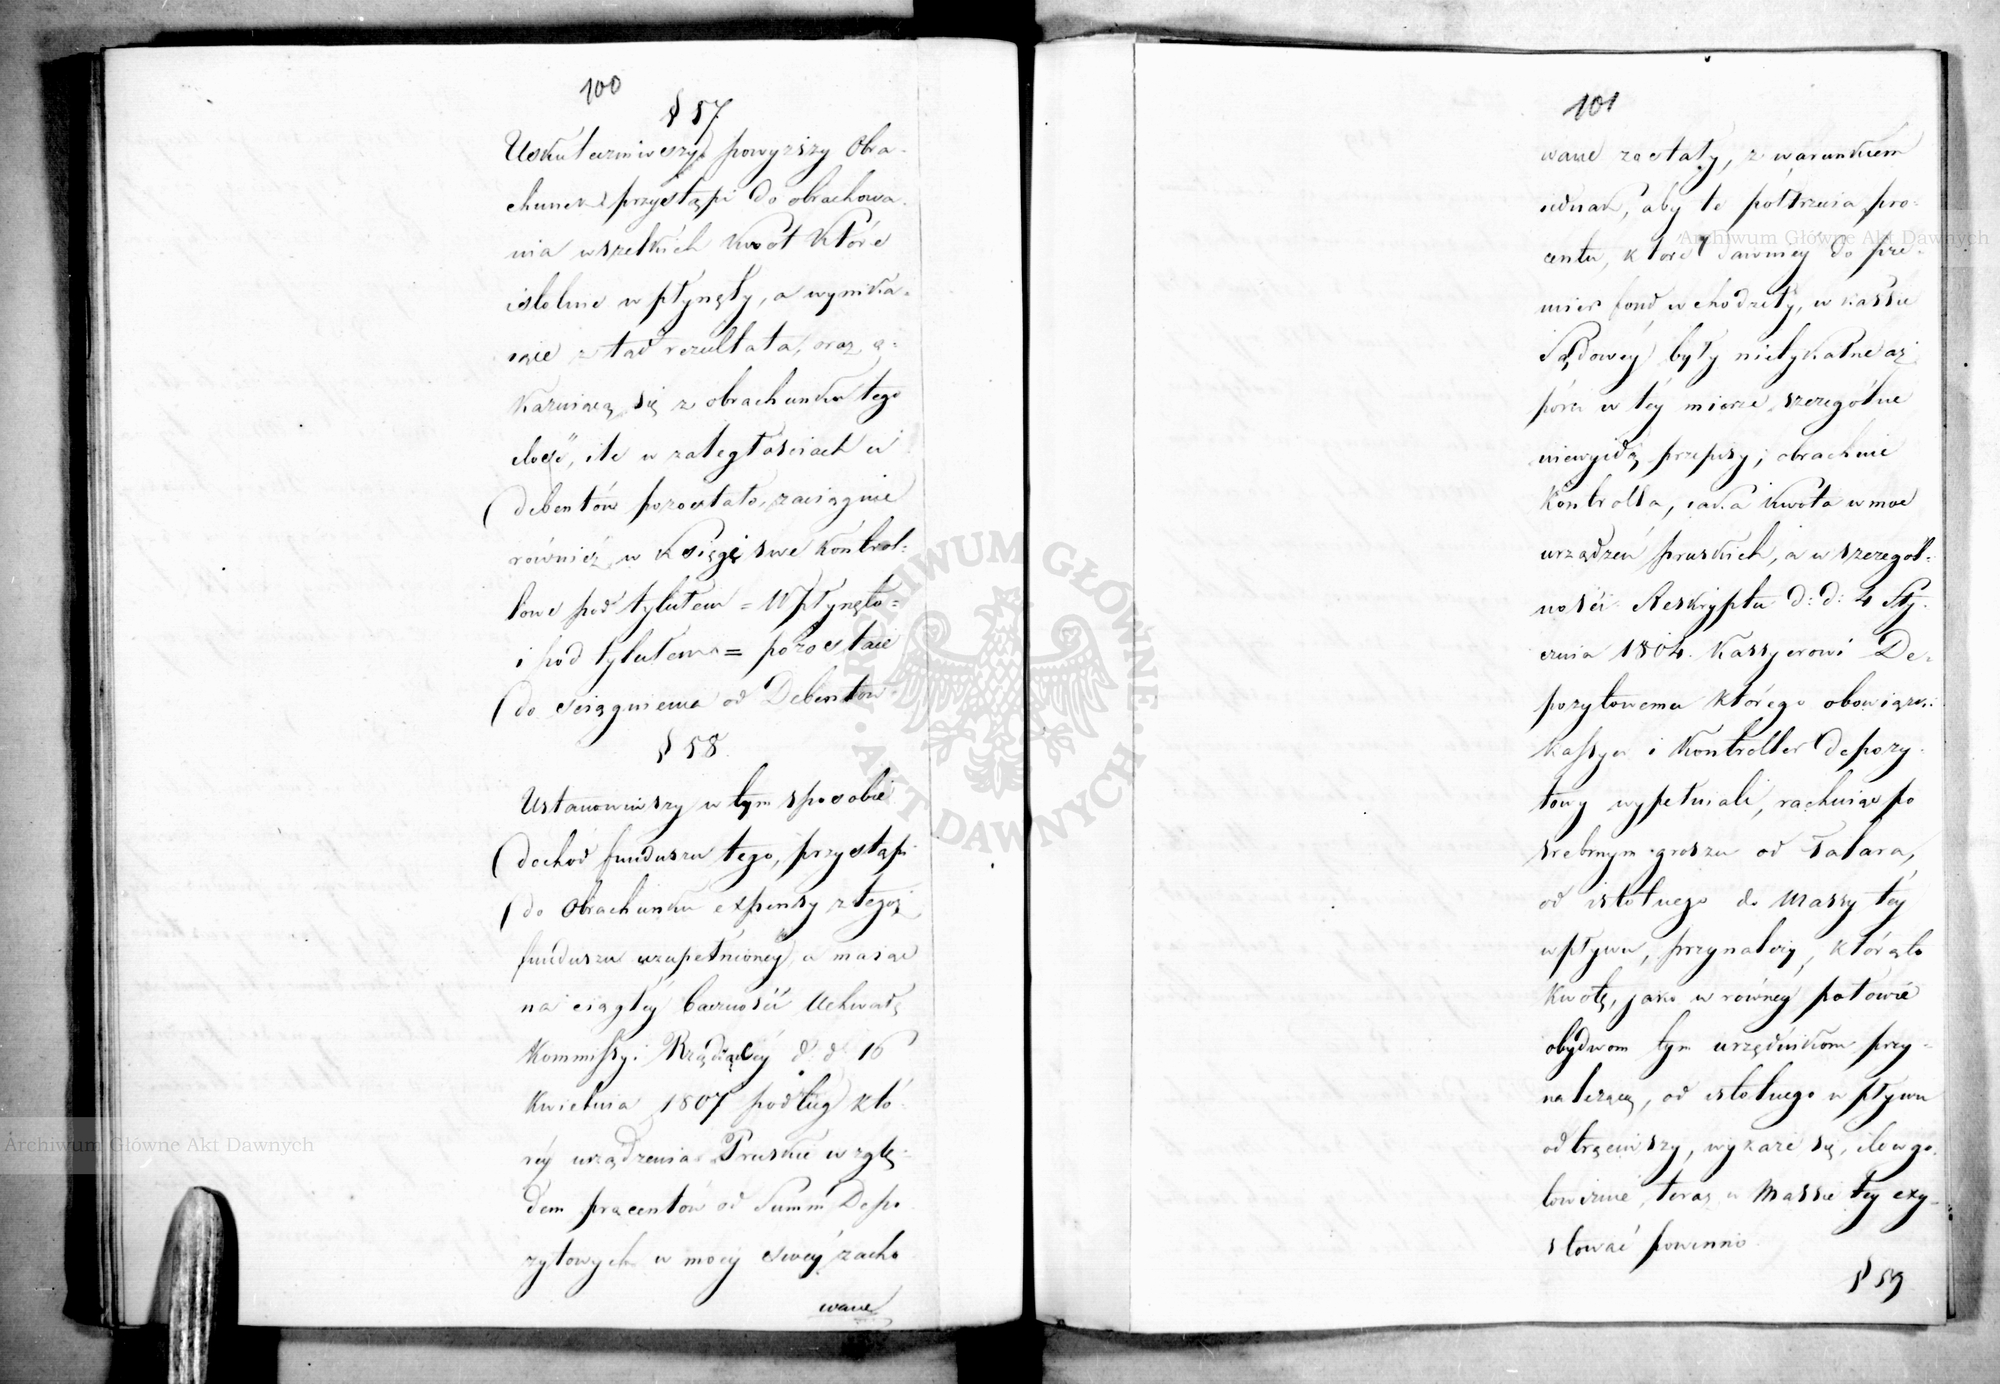 100
§ 57
Uskuteczniwszy powyższy Obra-
chunek przystąpi do obrachowa-
nia wszelkich kwot które
istotnie wpłynęły, a wynika-
iące z tąd rezultata, oraz o-
kazuiącą się z obrachunku tego
ilość, ile w zaległościach u
debentów pozostało, zaciągnie
równięż w Księgę swe kontrol-
lowe pod tytułem = Wpłynęło =
i pod tytułem = pozostaie
do ściągnienia od Debentów
§ 58
Ustanowiwszy w tym sposobie
dochod funduszu tego, przystąpi
do Obrachunku expensy z tegoż
funduszu uzupełnioney, a maiąc
na ciągłey baczności Uchwałę
Kommissyi Rządzącey d: d: 16
Kwietnia 1807 podług któ-
rey urządzenia Pruskie wzglę-
dem procentów od Summ Depo
zytowych w mocy swey zacho
wane
101
wane zostały, z warunkiem
iednak, aby te półtrzecia pro-
centu, które dawniey do pre-
mier fond wchodziły, w kassie
Sądowey były nietykalne aż
póki w tey mierze szczególne
niewyidą przepisy; obrachuie
Kontrolla, iaka kwota w moc
urządzeń pruskich, a w szczegól-
ności Reskryptu d: d: 4 Sty-
cznia 1804. Kassyerowi De-
pozytowemu którego obowiązki
Kassyer i Kontroller depozy-
towy wypełniali, rachuiąc po
srebrnym groszu od Talara,
od istotnego do Massy tey
wpływu, przynależy, którąto
kwotę, jako w równey połowie
obydwom tym urzędnikom przy-
należącą, od istotnego wpływu
odtrąciwszy, wykaże się, ile w go-
towiznie, teraz w Massie tey exy-
stować powinno
§ 59
Archiwum Główne Akt Dawnych
Archiwum Główne Akt Dawnych
ARCHIWUM GŁÓWNE AKT DAWNYCH